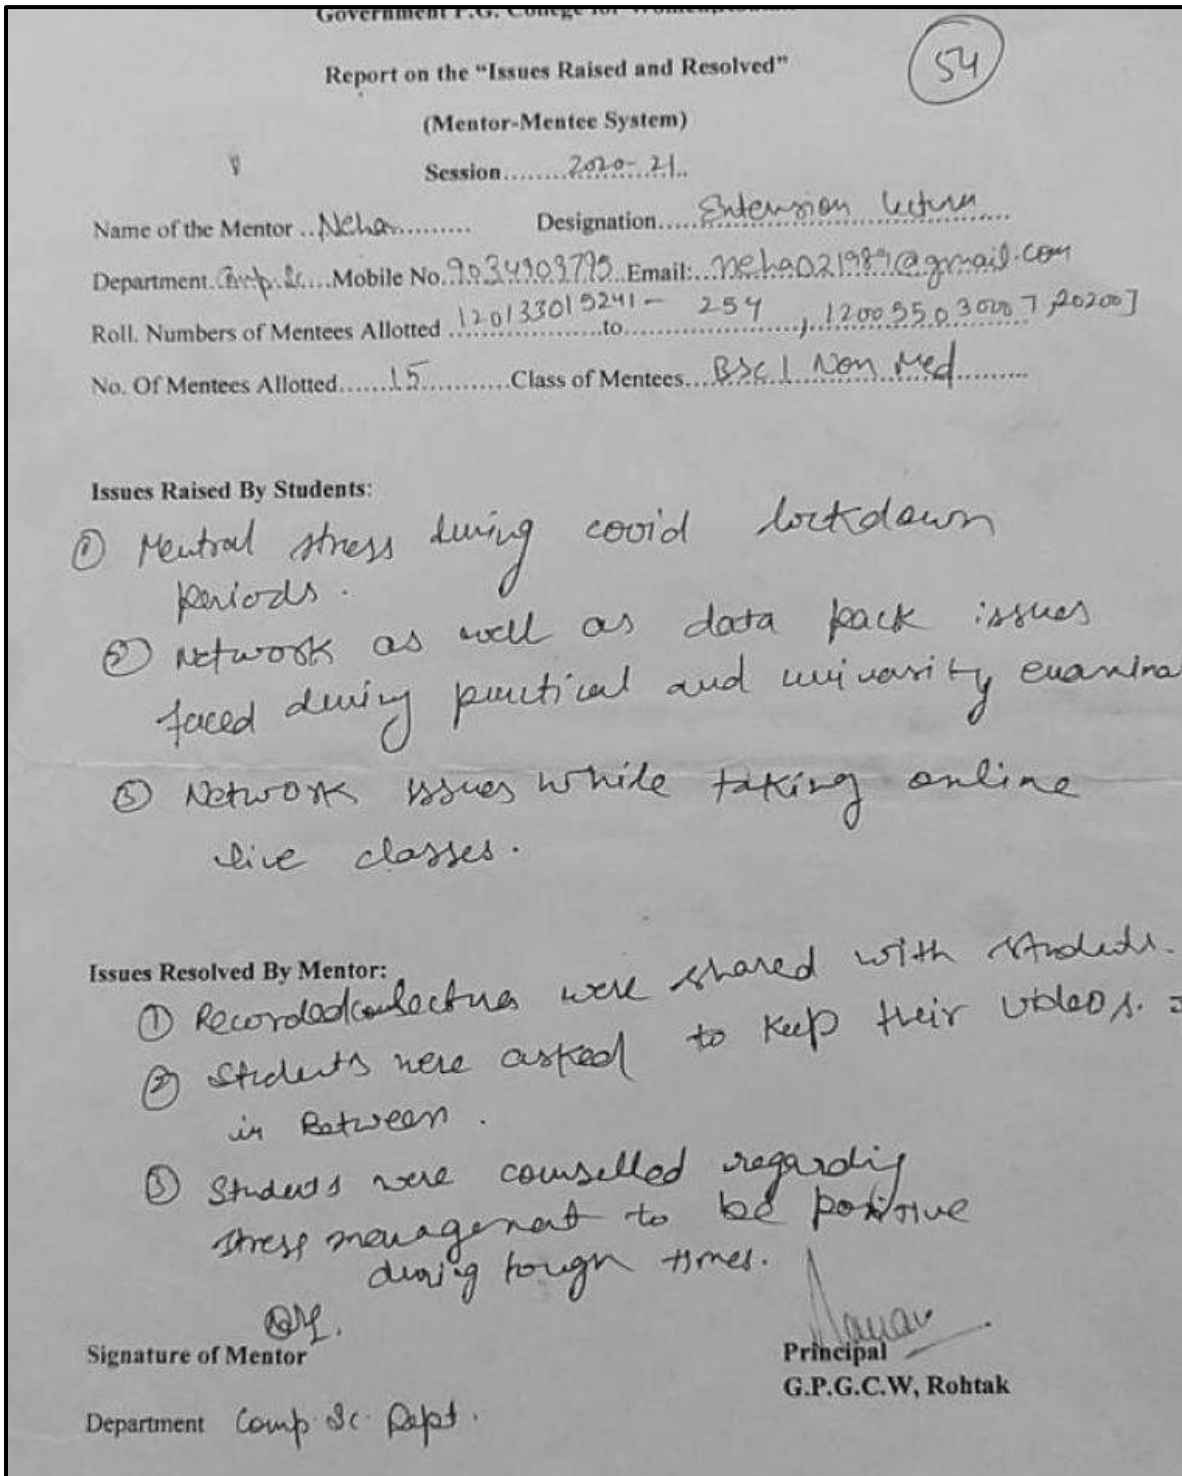 Government P.G. College for Women,
54
Report on the “Issues Raised and Resolved”
(Mentor-Mentee System)
Session........2020-21..
Name of the Mentor ..Neha.......... Designation.....Extension lecturer
Department.Comp.Sc....Mobile No. Email:..neha021989@gmail.com
Roll. Numbers of Mentees Allotted 120133015241- to 254
No. Of Mentees Allotted......15..........Class of Mentees...BSc I Non Med..........
Issues Raised By Students:
① Mental stress during covid lockdown
periods.
② Network as well as data pack issues
faced during practical and university examina
③ Network issues while taking online
live classes.
Issues Resolved By Mentor:
① Recorded lectures were shared with students.
② Students were asked to keep their videos.
in Between.
③ Students were counselled regardig
stress management to be positive
during tough times.
Signature of Mentor
Principal
G.P.G.C.W, Rohtak
Department Comp. Sc. Dept.